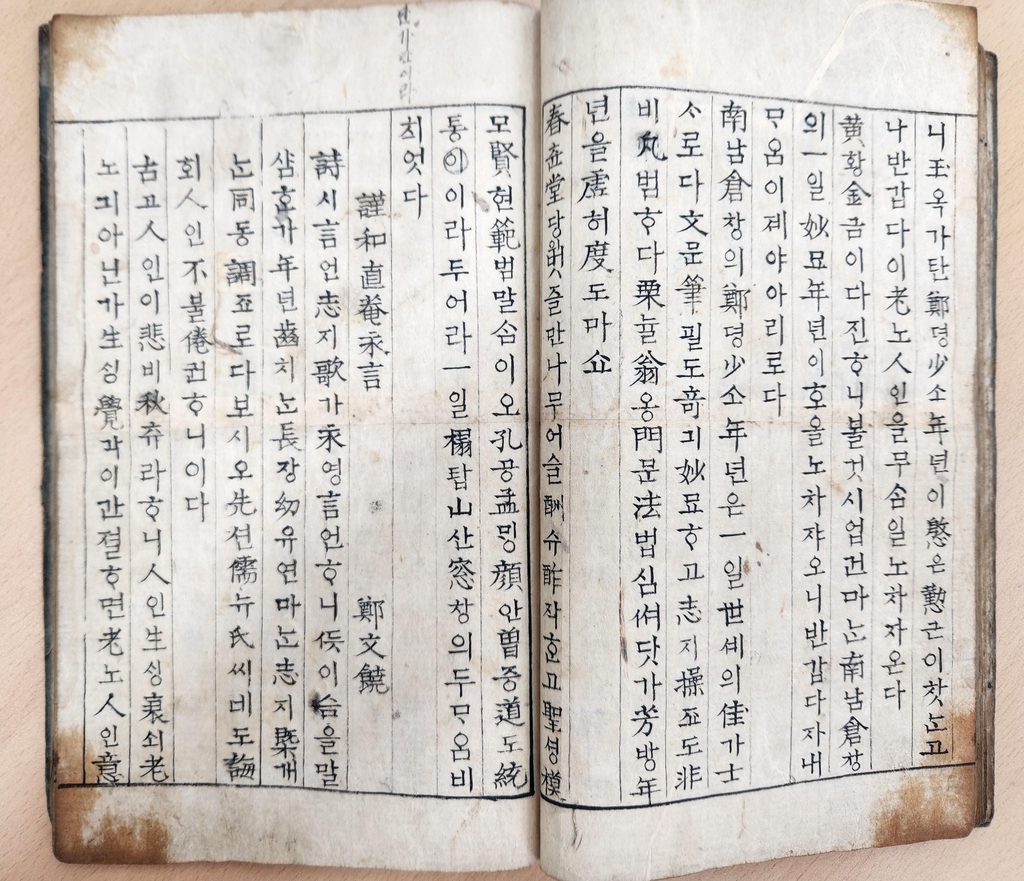 니玉옥가탄鄭뎡少소年년이慇은懃근이찻ᄂᆞᆫ고
나반갑다이老노人인을무ᄉᆞᆷ일노차자온다
黄황金금이다진ᄒᆞ니볼것시업건마ᄂᆞᆫ南남倉창
의一일妙묘年년이호올노차쟈오니반갑다자내
ᄆᆞᄋᆞᆷ이졔야아리로다
南남倉창의鄭뎡少소年년은一일世셰의佳가士
ᄉᆞ로다文문筆필도竒긔妙묘ᄒᆞ고志지操죠도非
비凡범ᄒᆞ다栗뉼翁옹門문法법심써닷가芳방年
년을虛허度도마쇼
春춘堂당을만나무어슬酬슈酢작ᄒᆞ고聖셩模
모賢현範범말ᄉᆞᆷ이오孔공孟ᄆᆡᆼ顔안曽증道도統
통이라두어라一일榻탑山산窓창의두ᄆᆞᄋᆞᆷ비
최엿다
謹和直菴永言 鄭文饒
詩시言언志지歌가永영言언ᄒᆞ니뜻이슴을말
삼ᄒᆞ가年년齒치ᄂᆞᆫ長장幼유연마ᄂᆞᆫ志지槩개
ᄂᆞᆫ同동調죠로다보시오先션儒뉴氏씨비도誨
회人인不불倦권ᄒᆞ니이다
古고人인이悲비秋츄라ᄒᆞ니人인生ᄉᆡᆼ衰쇠老
노긔아닌가生ᄉᆡᆼ覺각이간졀ᄒᆞ면老노人인意